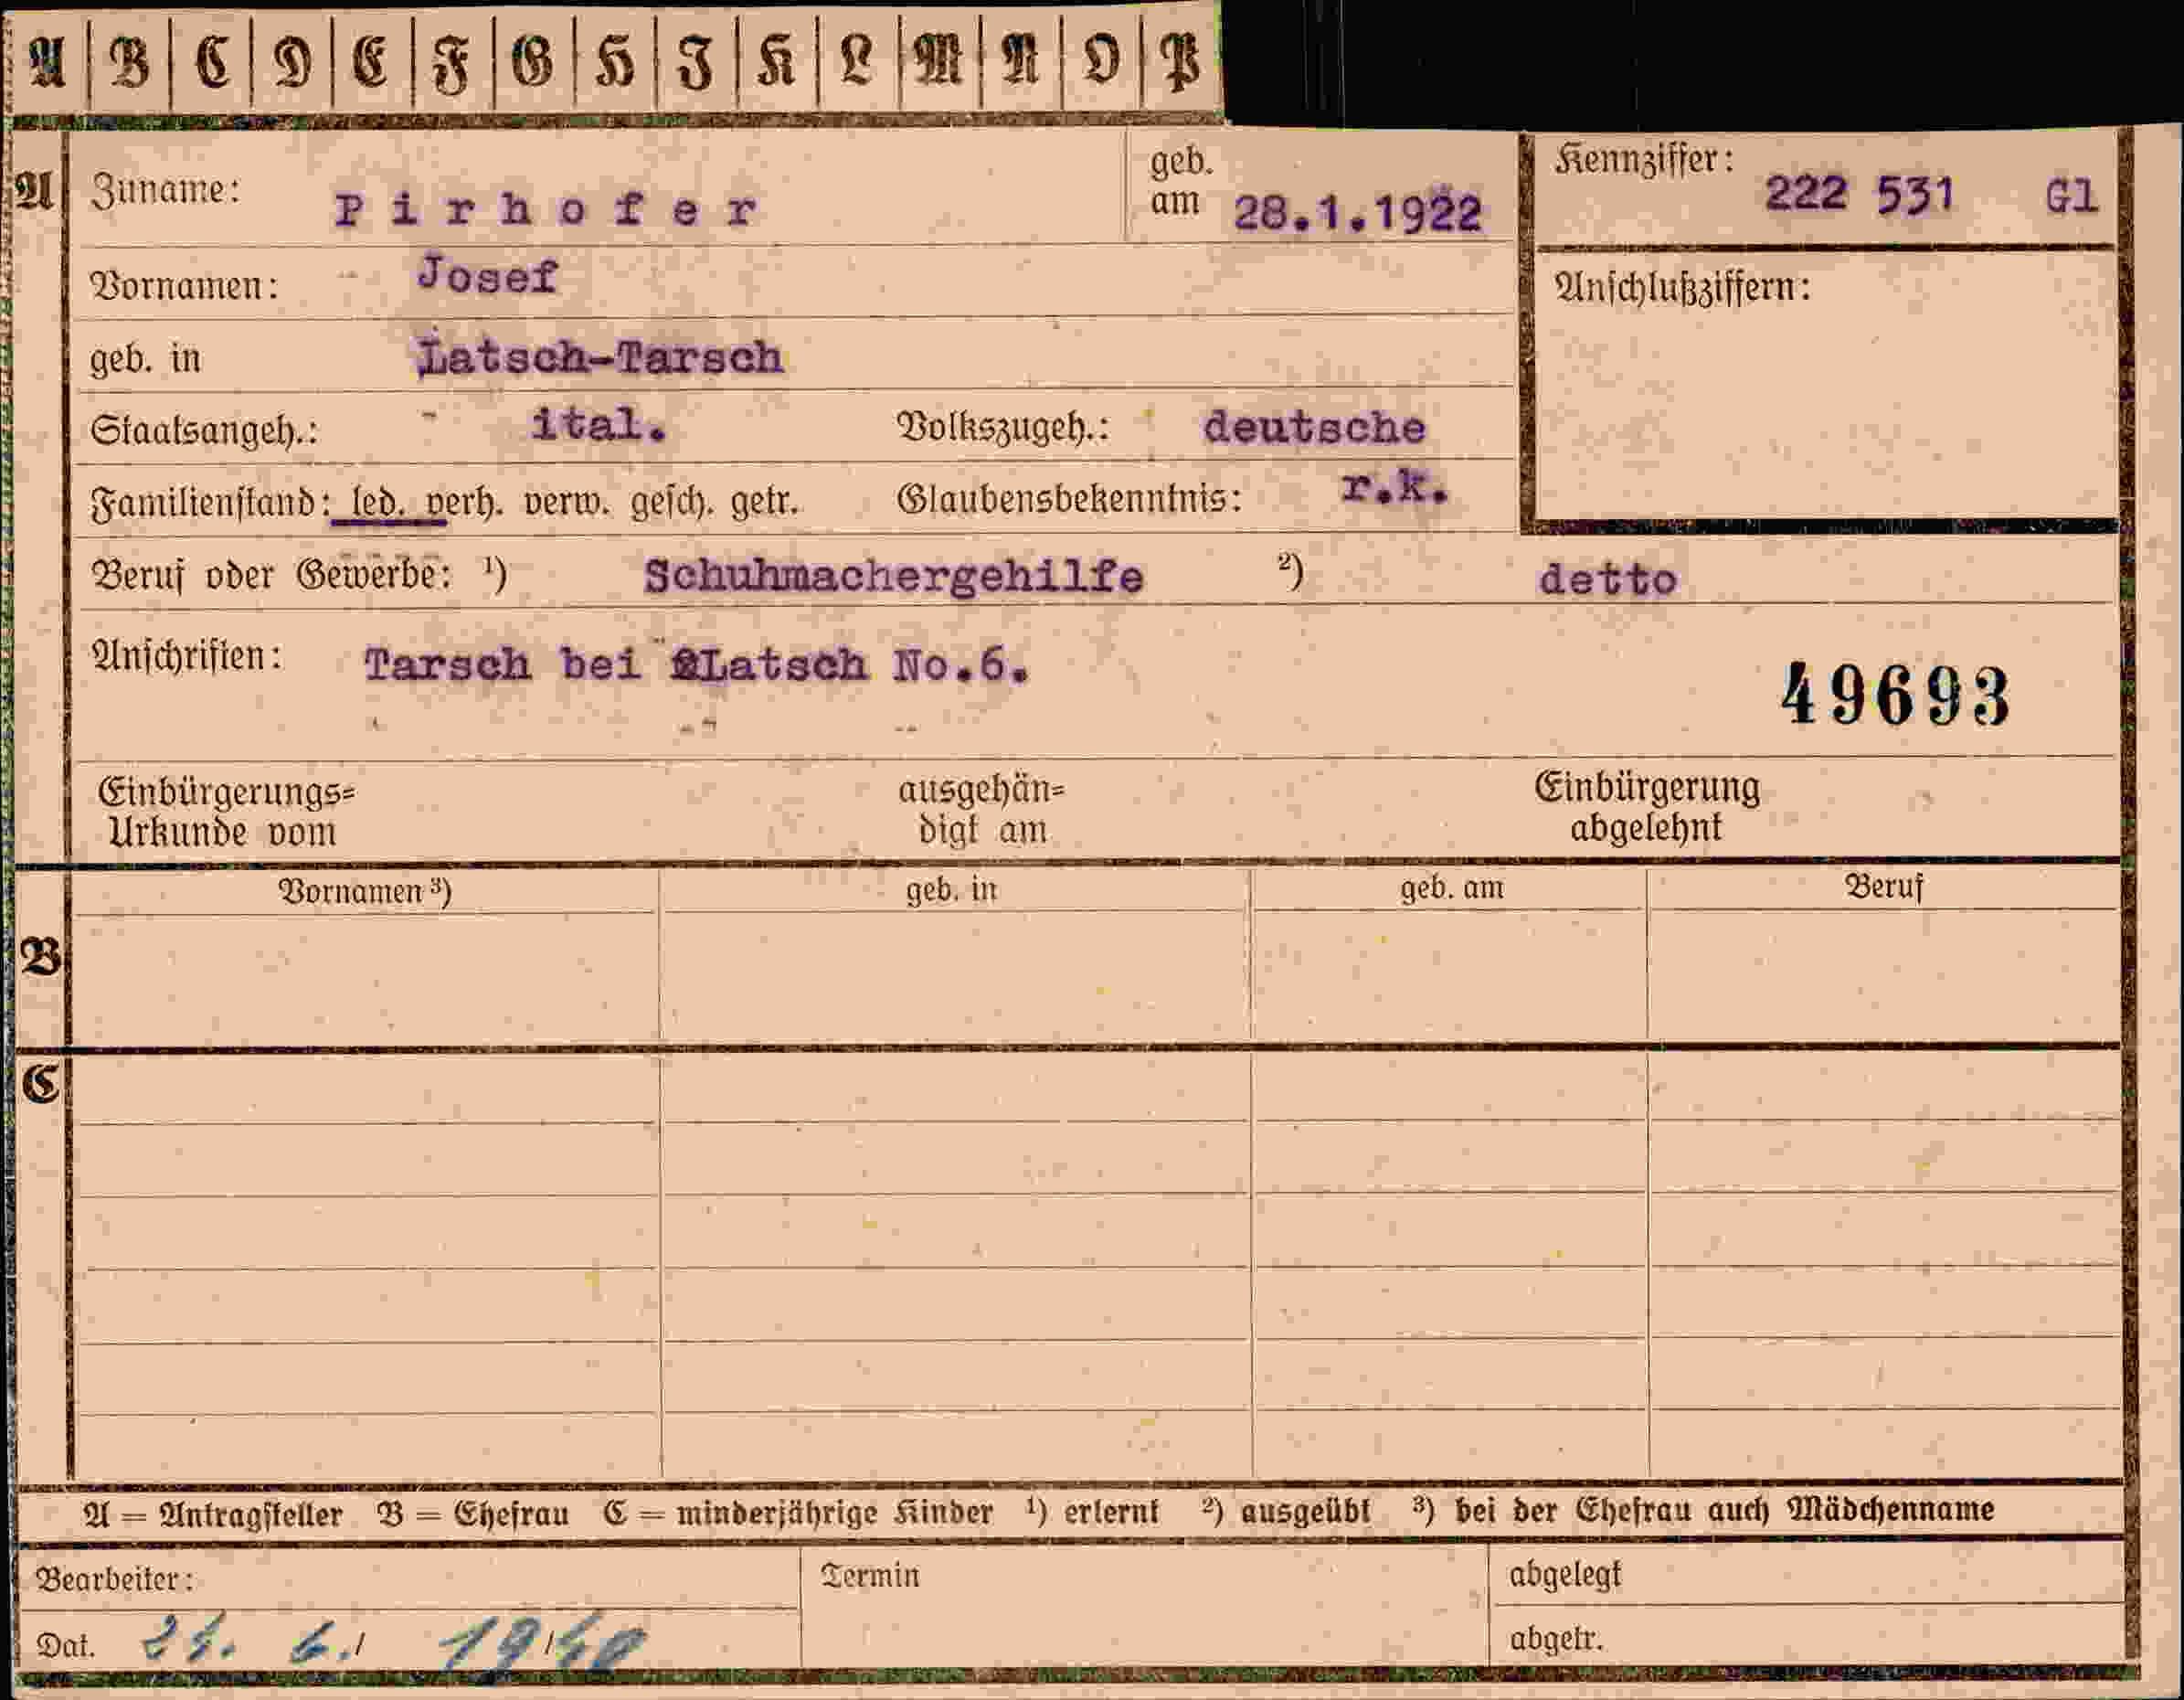 A B C D E F G H I K L M N O P
A Zuname: Pirhofer geb. am 28.1.1922 Kennziffer: 222 531 Gl
Vornamen: Josef Anschlußziffern:
geb. in Latsch-Tarsch
Staatsangeh.: ital. Volkszugeh.: deutsche
Familienstand: led. verh. verw. gesch. getr. Glaubensbekenntnis: r.k.
Beruf oder Gewerbe: ¹) Schuhmachergehilfe ²) detto
Anschriften: Tarsch bei Latsch No.6.
49693
Einbürgerungs= ausgehän= Einbürgerung
Urkunde vom digt am abgelehnt
Vornamen ³) geb. in geb. am Beruf
B
C
A = Antragsteller B = Ehefrau C = minderjährige Kinder ¹) erlernt ²) ausgeübt ³) bei der Ehefrau auch Mädchenname
Bearbeiter: Termin abgelegt
Dat. 6./ 19/40 abgetr.